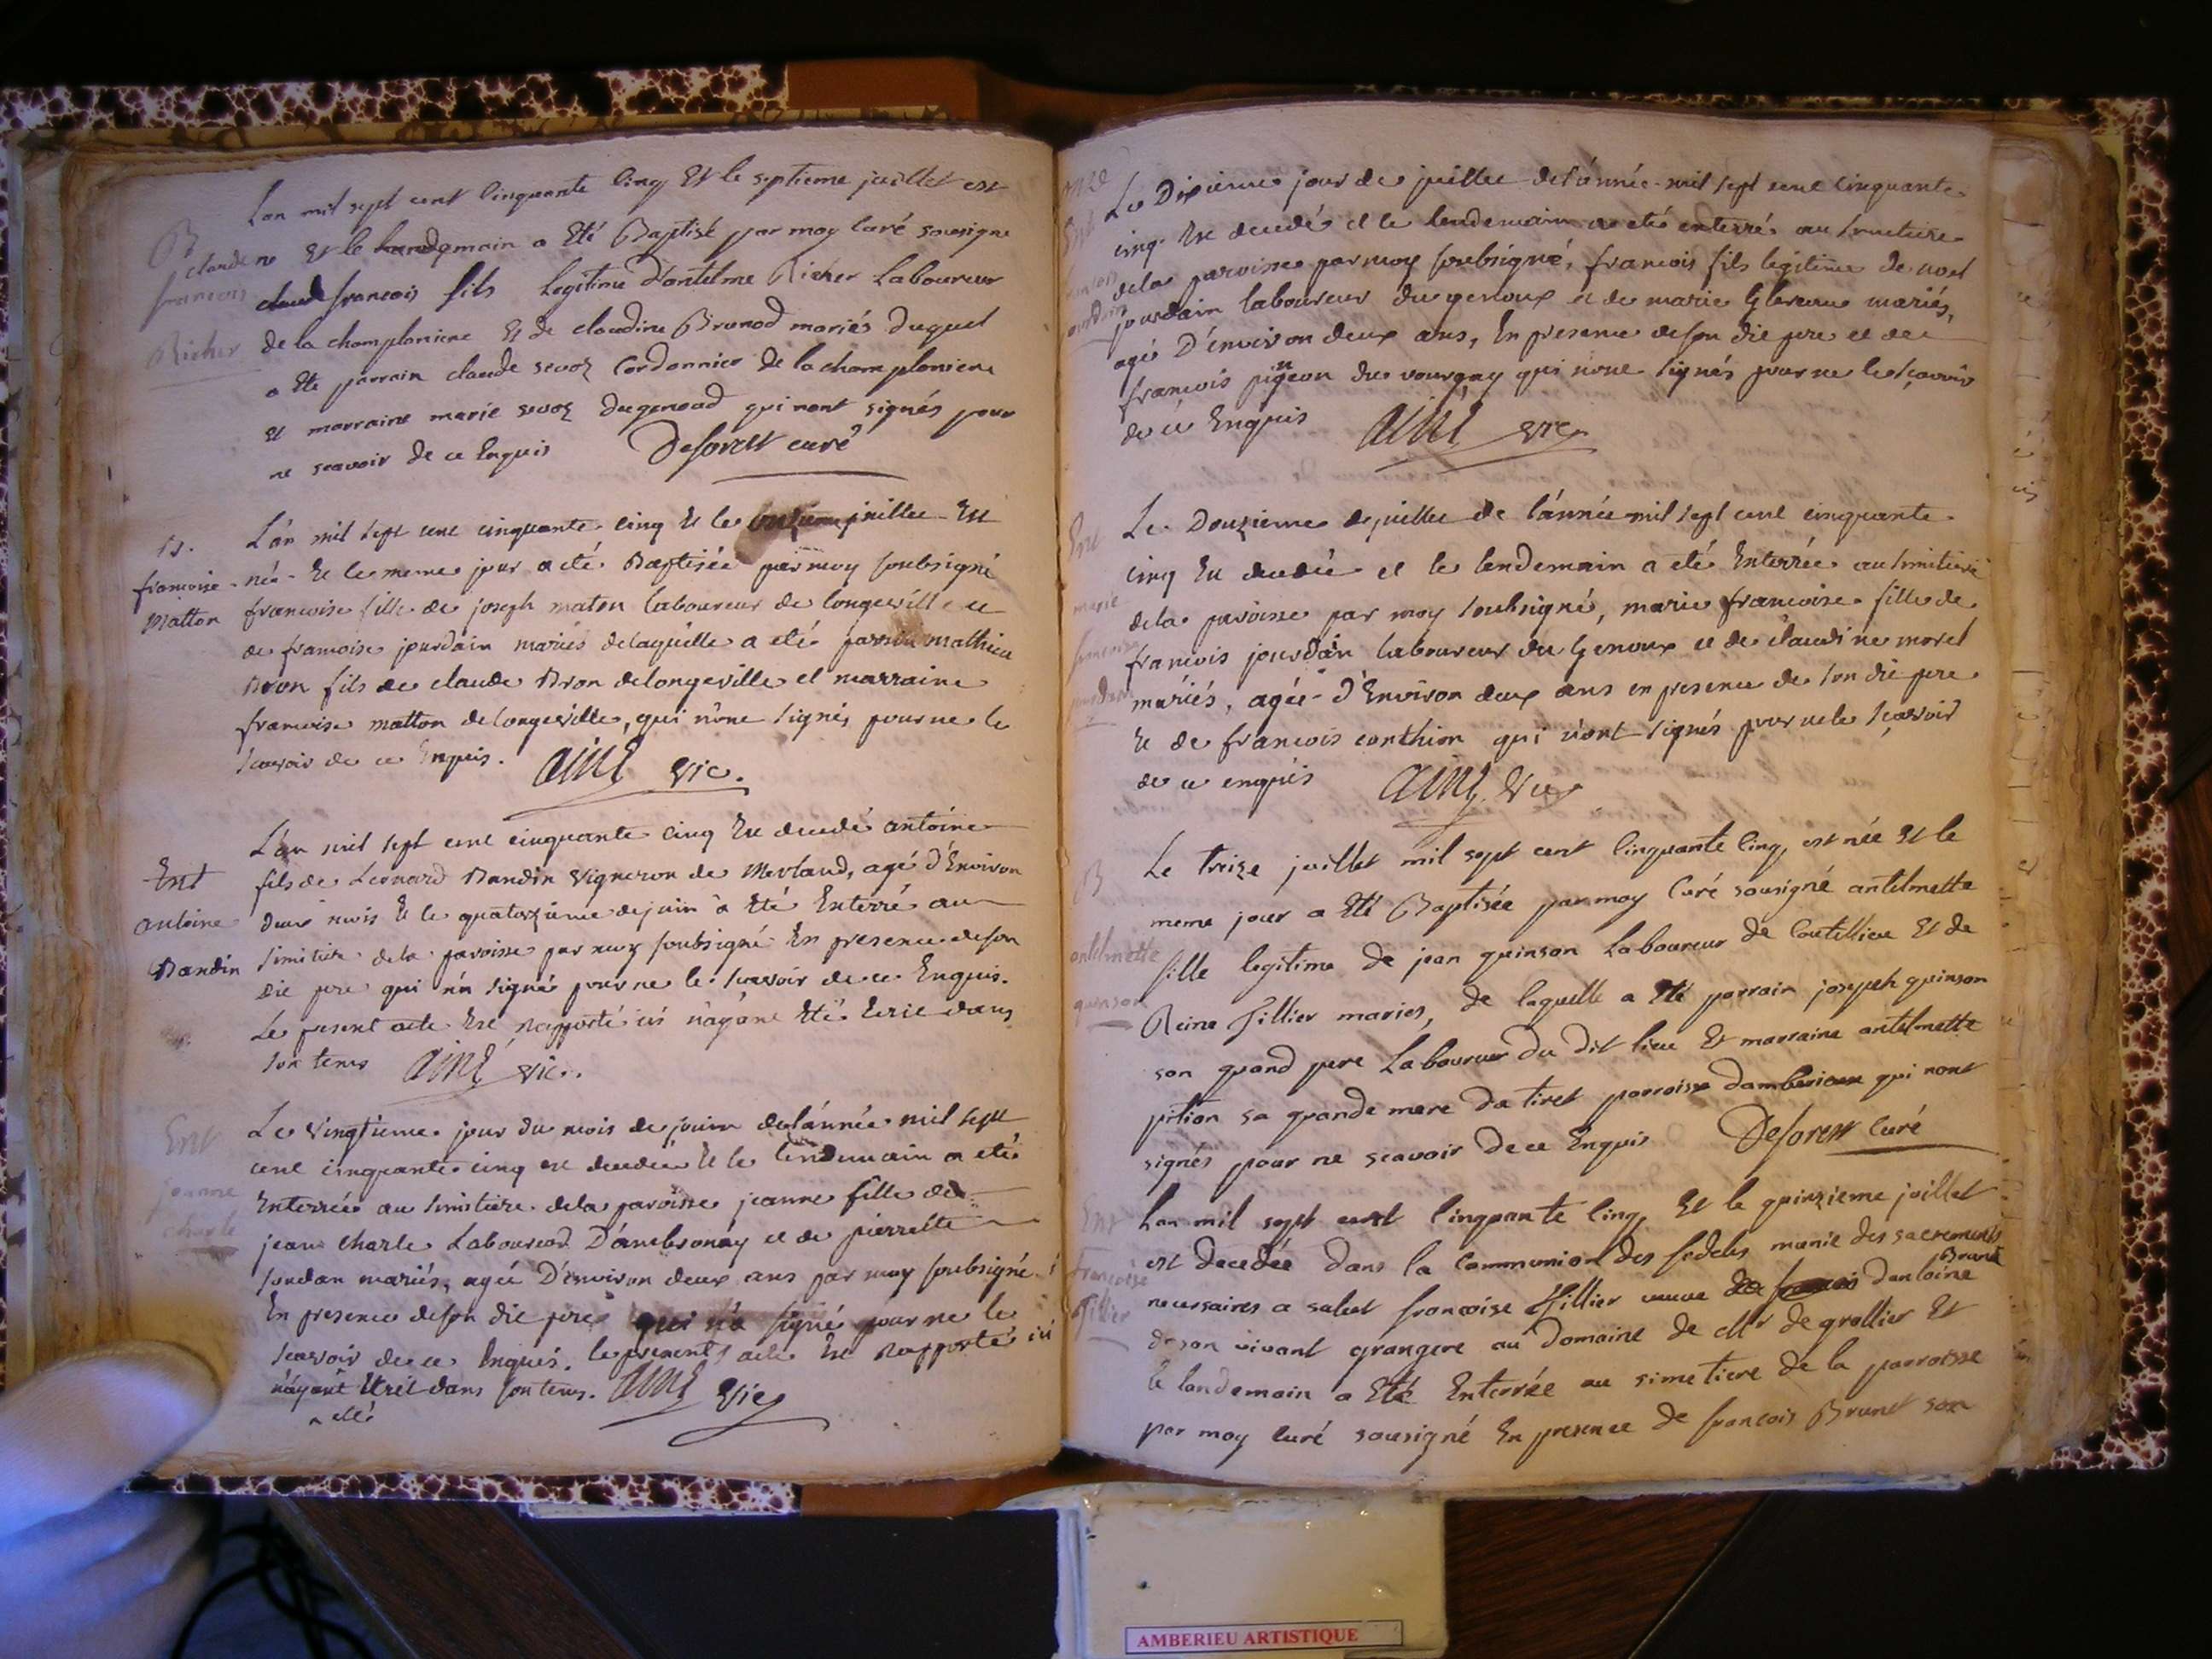 B
claude
francois
Richer
Lan mil sept cent Cinquante Cinq Et le septieme juillet est
ne Et le landemain a Eté Baptisé par moy Curé sousigne
claude francois fils Legitime d'antelme Richer Laboureur
de la champloniere Et de claudine Brunod mariés duquel
a Ete parrain claude sevoz Cordonnier de la champloniere
Et marraine marie sevoz du genoud qui nont signés pour
ne scavoir de ce Enquis Deforest curé
B.
francoise
Matton
L'an mil sept cent cinquante cinq Et le juillet Est
née Et le meme jour a eté Baptisée par moy soubsigné
francoise fille de joseph maton laboureur de longeville et
de francoise jourdain mariés de laquelle a eté parrain mathieu
Bron fils de claude Bron de longeville et marraine
francoise matton de longeville, qui n'ont signés pour ne le
scavoir de ce Enquis. Aimé vic.
Ent
antoine
Bandin
L'an mil sept cent cinquante cinq Est decedé antoine
fils de Leonard Bandin vigneron de Merland, agé d'Environ
deux mois Et le quatorzieme de juin a Eté Enterré au
simitiere de la paroisse par moy soubsigné En presence de son
dit pere qui n'a signé pour ne le scavoir de ce Enquis.
Le present acte Est Rapporté ici n'ayant Eté Ecrit dans
son tems Aimé vic.
Ent
jeanne
charle
Le vingtieme jour du mois de jouin de l'année mil sept
cent cinquante cinq est decedée Et le lendemain a eté
Enterrée au simitiere de la paroisse jeanne fille de
jean Charle Laboureur D'ambronay et de pierrette
jourdan mariés, agée D'environ deux ans par moy soubsigné
En presence de son dit pere qui n'a signé pour ne le
scavoir de ce Enquis. le present acte Est Rapporté ici
n'ayant Ecrit dans son tems. Aimé Vic
^ eté
Ent
francois
jourdain
Le Dixieme jour de juillet de l'année mil sept cent cinquante
cinq Est decedé et le lendemain a eté enterré au simitiere
de la paroisse par moy soubsigné, francois fils legitime de noel
jourdain laboureur du genoux et de marie mariés,
agé D'environ deux ans, En presence de son dit pere et de
francois pigeon du vourgay qui n'ont signés pour ne le scavoir
de ce Enquis Aimé vic
Ent
marie
francoise
jourdan
Le Douzieme de juillet de l'année mil sept cent cinquante
cinq Est decedée et le lendemain a eté Enterrée au simitiere
de la paroisse par moy soubsigné, marie francoise fille de
francois jourdan laboureur du Genoux et de claudine morel
mariés, agée d'Environ deux ans en presence de son dit pere
Et de francois conthion qui n'ont signés pour ne le scavoir
de ce enquis Aimé Vic
B
antelmette
quinson
Le treize juillet mil sept cent Cinquante Cinq, est née Et le
meme jour a Eté Baptisée par moy Curé sousigné antelmette
fille legitime de jean quinson Laboureur de Coutelieu Et de
Reine Tillier mariés, de laquelle a Eté parrain joseph quinson
son grand pere Laboureur du dit lieu Et marraine antelmette
pition sa grande mere de tiret parroisse dambericux qui nont
signés pour ne scavoir de ce Enquis Deforest Curé
Ent
francoise
Tillier
Lan mil sept cent Cinquante Cinq, Et le quinzieme juillet
est decedée dans la Communion des fideles munie des sacrements
necessaires a salut francoise Tillier veuve dantoine Brunet
de son vivant grangere au domaine de Mr de grollier Et
le landemain a Eté Enterrée au simetiere de la parroisse
par moy Curé sousigné En presence de francois Brunet son
AMBERIEU ARTISTIQUE